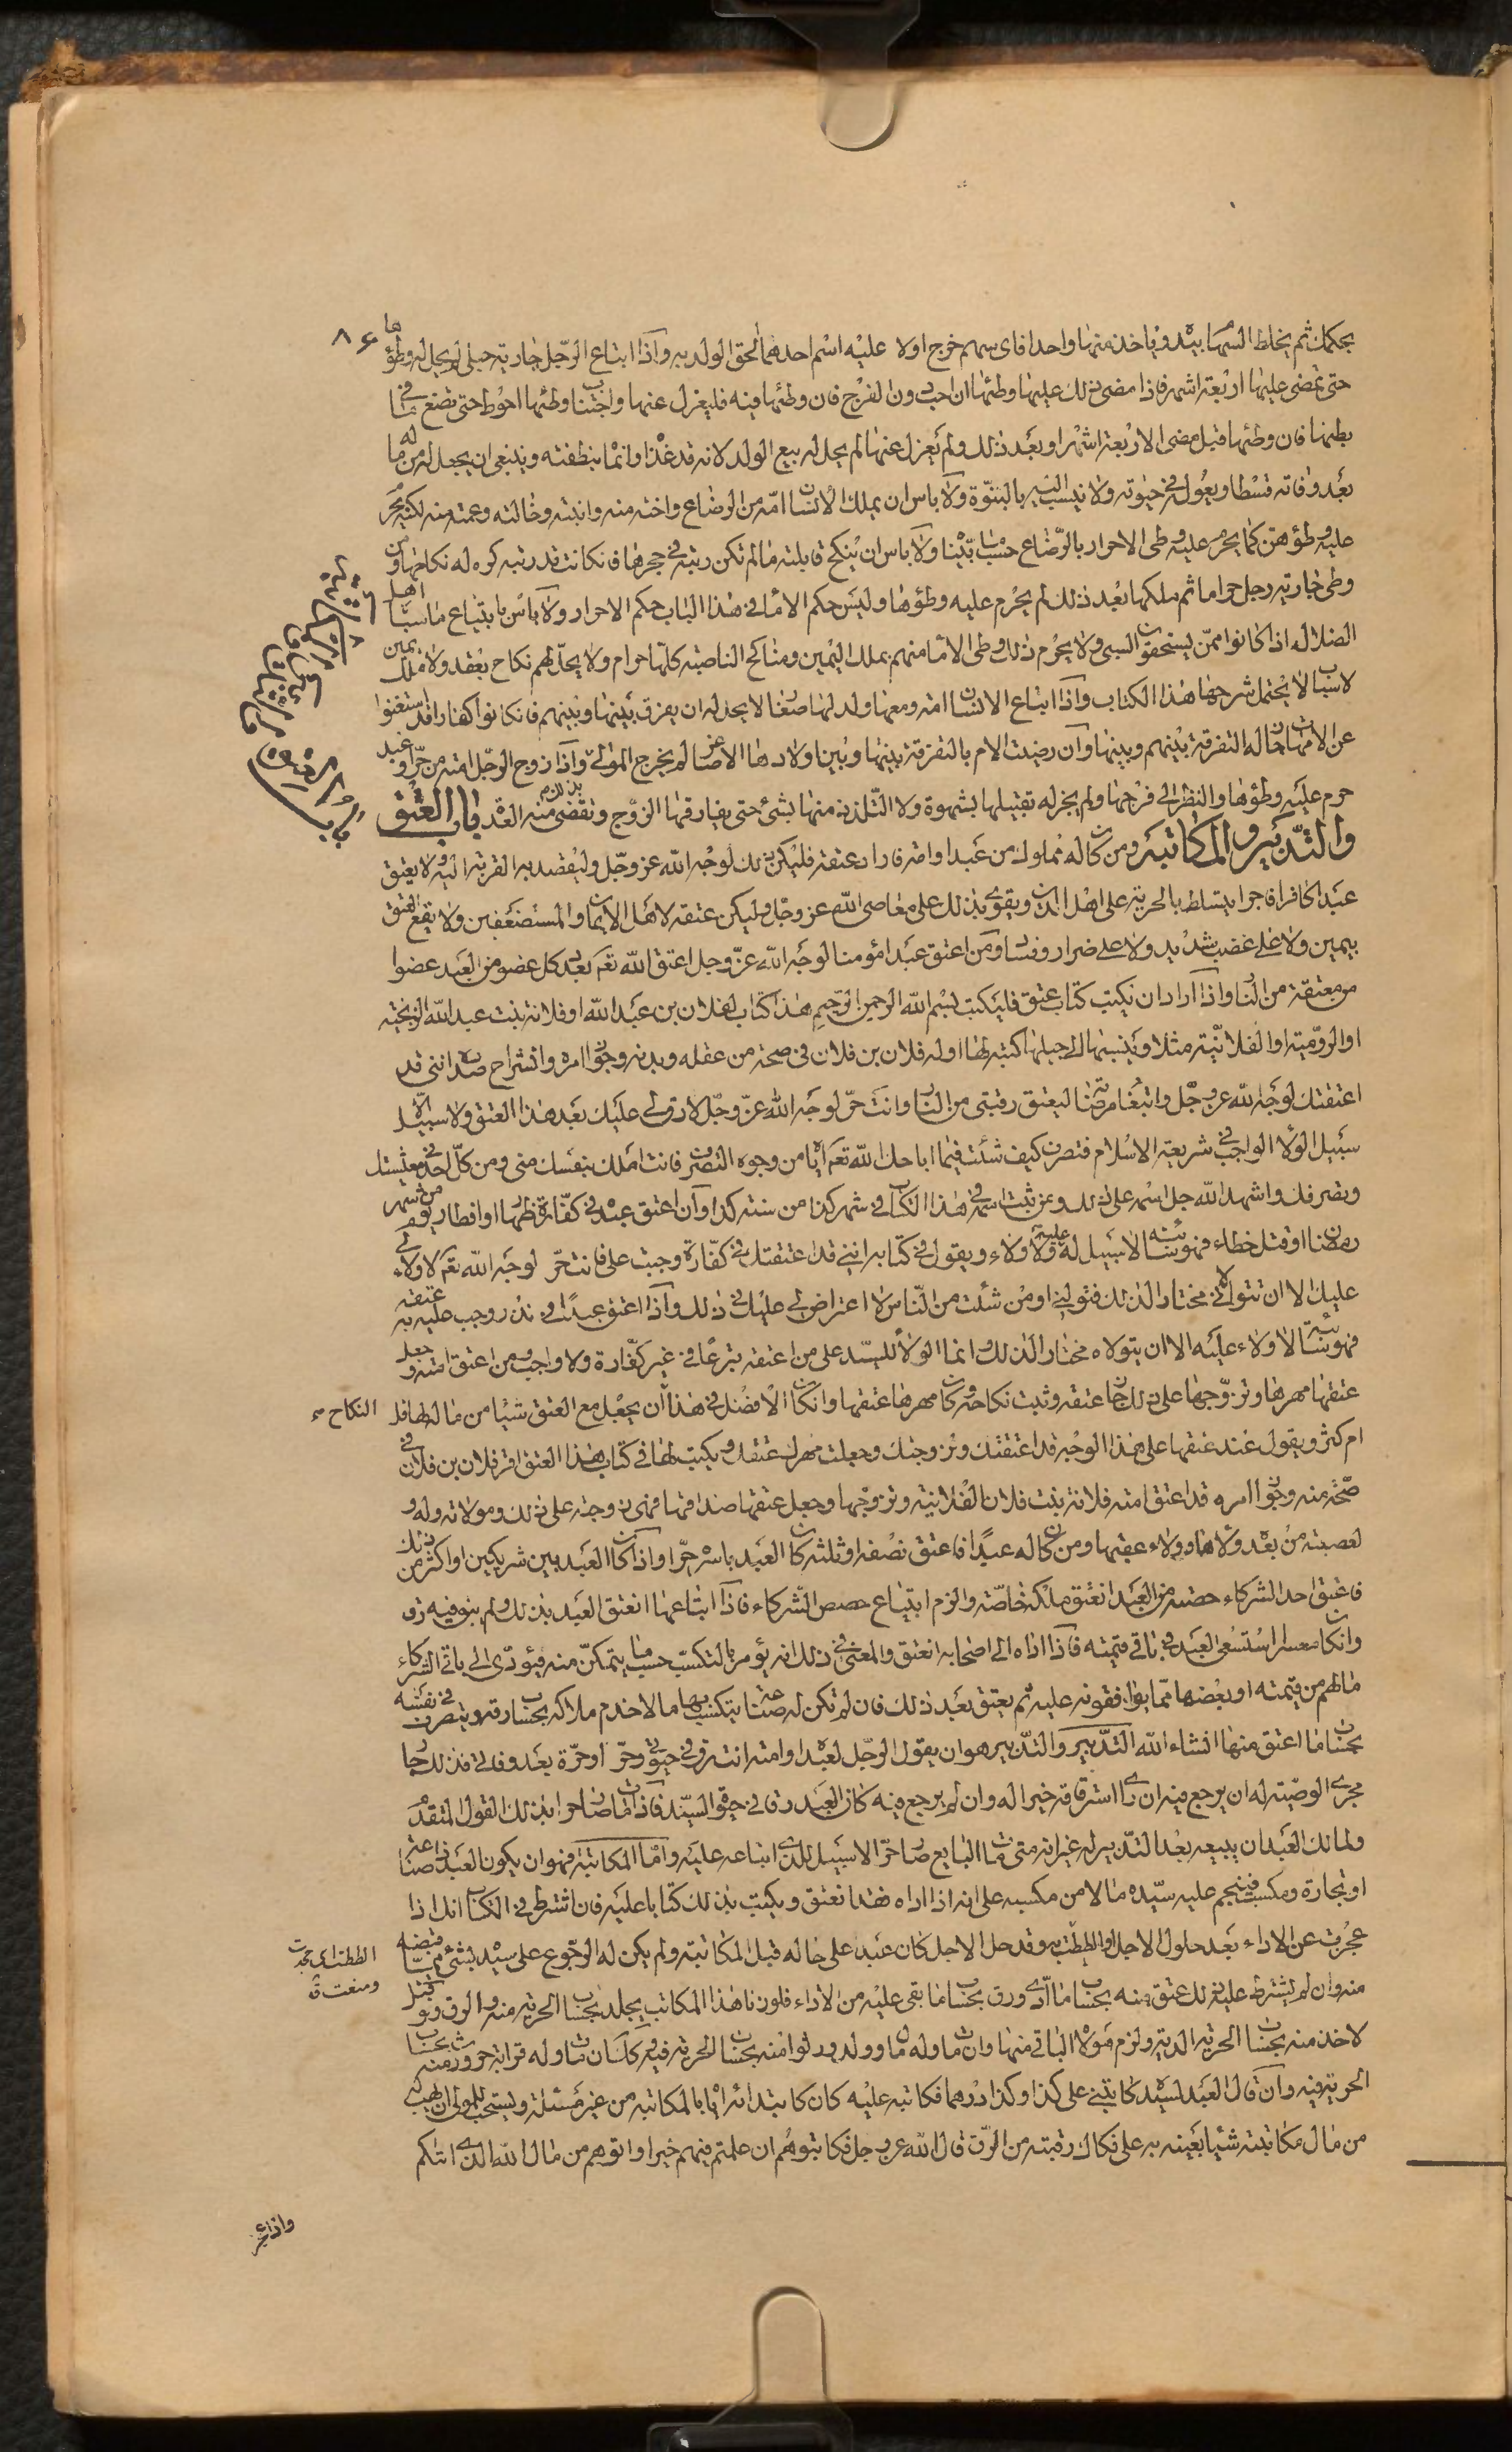 ٨٦
بحكمك ثم يخلط السهام بيده وياخذ منها واحدا فاى سهم خرج اولا عليه اسم احدهما الحق الولد به واذا ابتاع الرجل جارية حبلى لم يحل له وطؤها
حتى تمضى عليها اربعة اشهر فاذا مضى ذلك عليها وطئها ان احب دون الفرج فان وطئها فيه فليعزل عنها واجتناب وطئها احوط حتى تضع ما فى
بطنها فان وطئها قبل مضى الاربعة اشهر او بعد ذلك ولم يعزل عنها لم يحل له بيع الولد لانه قد غذاه وانماه بنطفته وينبغى ان يجعل له من ماله
بعد وفاته قسطا ويعوله فى حيوته ولا ينسب اليه بالبنوة ولا باس ان يملك الانسان امه من الرضاع واخته منه وابنته وخالته وعمته منه لكنه يحرم
عليه وطؤهن كما يحرم عليه وطى الاحرار بالرضاع حسب ما بيناه ولا باس ان ينكح قابلته ما لم تكن ربته فى حجرها فان كانت قد ربته كره له نكاحها ومن
وطى جارية رجل حراما ثم ملكها بعد ذلك لم يحرم عليه وطؤها وليس حكم الاماء فى هذا الباب حكم الاحرار ولا باس بابتياع ما سباه اهل
الضلال اذا كانوا ممن يستحقون السبى ولا يحرم ذلك وطى الاماء منهم بملك اليمين ومناكح الناصبة كلها حرام ولا يحل لهم نكاح بعقد ولا ملك يمين
لاسباب لا يحتمل شرحها هذا الكتاب واذا ابتاع الانسان امة ومعها ولد لها صغار لا يحل له ان يفرق بينها وبينهم فان كانوا كفارا قد استغنوا
عن الامهات جاز له التفرقة بينهم وبينها وان رضيت الام بالتفرقة بينها وبين اولادها الاصاغر لم يخرج المولى واذا زوج الرجل امته من حر او عبد
حرم عليه وطؤها والنظر الى فرجها ولم يجز له تقبيلها بشهوة ولا التلذذ منها بشئ حتى يفارقها الزوج وتقضى منه العدة باب العتق
والتدبير والمكاتبة ومن كان له مملوك من عبد او امة فاراد عتقه فليكن ذلك لوجه الله عز وجل وليقصد به القربة اليه ولا يعتق
عبدا كافرا فاجرا يتسلط بالحرية على اهل الدين ويقوى بذلك على معاصى الله عز وجل وليكن عتقه لاهل الايمان والمستضعفين ولا يقع العتق
بيمين ولا على غضب شديد ولا على ضرار وفساد ومن اعتق عبدا مؤمنا لوجه الله عز وجل اعتق الله تعم بعد كل عضو من العبد عضوا
من معتقه من النار واذا اراد ان يكتب كتاب عتق فليكتب بسم الله الرحمن الرحيم هذا كتاب لفلان بن عبد الله او فلانة بنت عبد الله الزنجية
او الرومية او الفلانية مثلا وينسبها الى جيلها كتبه لها او له فلان بن فلان فى صحة من عقله وبدنه وجواز امره وانشراح صدر اننى قد
اعتقتك لوجه الله عز وجل وابتغاء مرضاته ليعتق رقبتى من النار وانت حر لوجه الله عز وجل لا رق لى عليك بعد هذا العتق ولا سبيل الا
سبيل الولاء الواجب فى شريعة الاسلام فتصرف كيف شئت فيما اباحك الله تعم اياه من وجوه التصرف فانت املك بنفسك منى ومن كل احد فى معيشتك
وتصرفك واشهد الله جل اسمه على ذلك ومن ثبت اسمه فى هذا الكتاب فى شهر كذا من سنة كذا وان اعتق عبده فى كفارة ظهار او افطار يوم من شهر
رمضان او قتل خطاء فهو سائبة لا سبيل له عليه ولا ولاء ويقول فى كتابه اننى قد اعتقتك فى كفارة وجبت على فانت حر لوجه الله تعم لا ولاء لى
عليك الا ان تتولانى مختارا لذلك فتولنى او من شئت من الناس لا اعتراض لى عليك فى ذلك واذا اعتق عبدا فى نذر وجب عليه به عتقه
فهو سائبة لا ولاء عليه الا ان يتولاه مختارا لذلك وانما الولاء للسيد على من اعتقه تبرعا فى غير كفارة ولا واجب ومن اعتق امته وجعل
عتقها مهرها وتزوجها على ذلك جاز عتقه وثبت نكاحه وكان مهرها عتقها وان كان الافضل فى هذا ان يجعل مع العتق شيئا من ماله لها قل
النكاح
ام كثر ويقول عند عتقها على هذا الوجه قد اعتقتك وتزوجتك وجعلت مهرك عتقك ويكتب لها فى كتاب هذا العتق اقر فلان بن فلان فى
صحة منه وجواز امره قد اعتق امته فلانة بنت فلان الفلانية وتزوجها وجعل عتقها صداقها فهى زوجته على ذلك ومولاته وله و
لعصبته من بعده ولاؤها وولاء عقبها ومن كان له عبد فاعتق نصفه او ثلثه كان العبد باسره حرا واذا كان العبد بين شريكين او اكثر من ذلك
فاعتق احد الشركاء حصته من العبد انعتق ملكه خاصة والزم ابتياع حصص الشركاء فاذا ابتاعها انعتق العبد بذلك ولم يبق فيه رق
وان كان معسرا استسعى العبد فى باقى قيمته فاذا اداه الى اصحابه انعتق والمعنى فى ذلك انه يؤمر بالتكسب حسب ما يتمكن منه فيؤدى الى باقى الشركاء
ما لهم من قيمته او بعضها مما يوافقونه عليه ثم يعتق بعد ذلك فان لم تكن له صناعة يتكسب بها مالا خدم ملاكه بحساب رقه ويتصرف فى نفسه
بحساب ما اعتق منها انشاء الله التدبير والتدبير هو ان يقول الرجل لعبده او امته انت رق فى حيوتى وحر او حرة بعد وفاتى فذلك جار
مجرى الوصية له ان يرجع فيه ان راى استرقاقه خيرا له وان لم يرجع فيه كان العبد رقا فى حيوة السيد فاذا مات صار حرا بذلك القول المتقدم
ولمالك العبد ان يبيعه بعد التدبير له غير انه متى مات البايع صار حرا لا سبيل للذى ابتاعه عليه واما المكاتبة فهو ان يكون للعبد صناعة
او تجارة ومكسب فينجم عليه سيده مالا من مكسبه على انه اذا اداه فقد انعتق ويكتب بذلك كتابا عليه فان اشترط فى الكتاب انك اذا
عجزت عن الاداء بعد حلول الاجل او الططت به وقد حل الاجل كان عبد على حاله قبل المكاتبة ولم يكن له الرجوع على سيده بشئ مما قبضه
منه وان لم يشترط عليه ذلك عتق منه بحساب ما ادى ورق بحساب ما بقى عليه من الاداء فلو زنا هذا المكاتب يجلد بحساب الحرية منه والرق ولو قتل
لاخذ منه بحساب الحرية الدية ولزم مولاه الباقى منها وان مات وله مال وولد ورثوا منه بحساب الحرية فيه وكذلك ان مات وله قرابة حر ورث منه بحساب
الحرية فيه وان قال العبد لسيده كاتبنى على كذا وكذا درهما فكاتبه عليه كان كابتدائه اياه بالمكاتبة من غير مسئلة ويستحب للمولى ان يهب له
من مال مكاتبته شيئا يعينه به على فكاك رقبته من الرق قال الله عز وجل فكاتبوهم ان علمتم فيهم خيرا واتوهم من مال الله الذى اتيكم
الططت اى جحدت
ومنعت